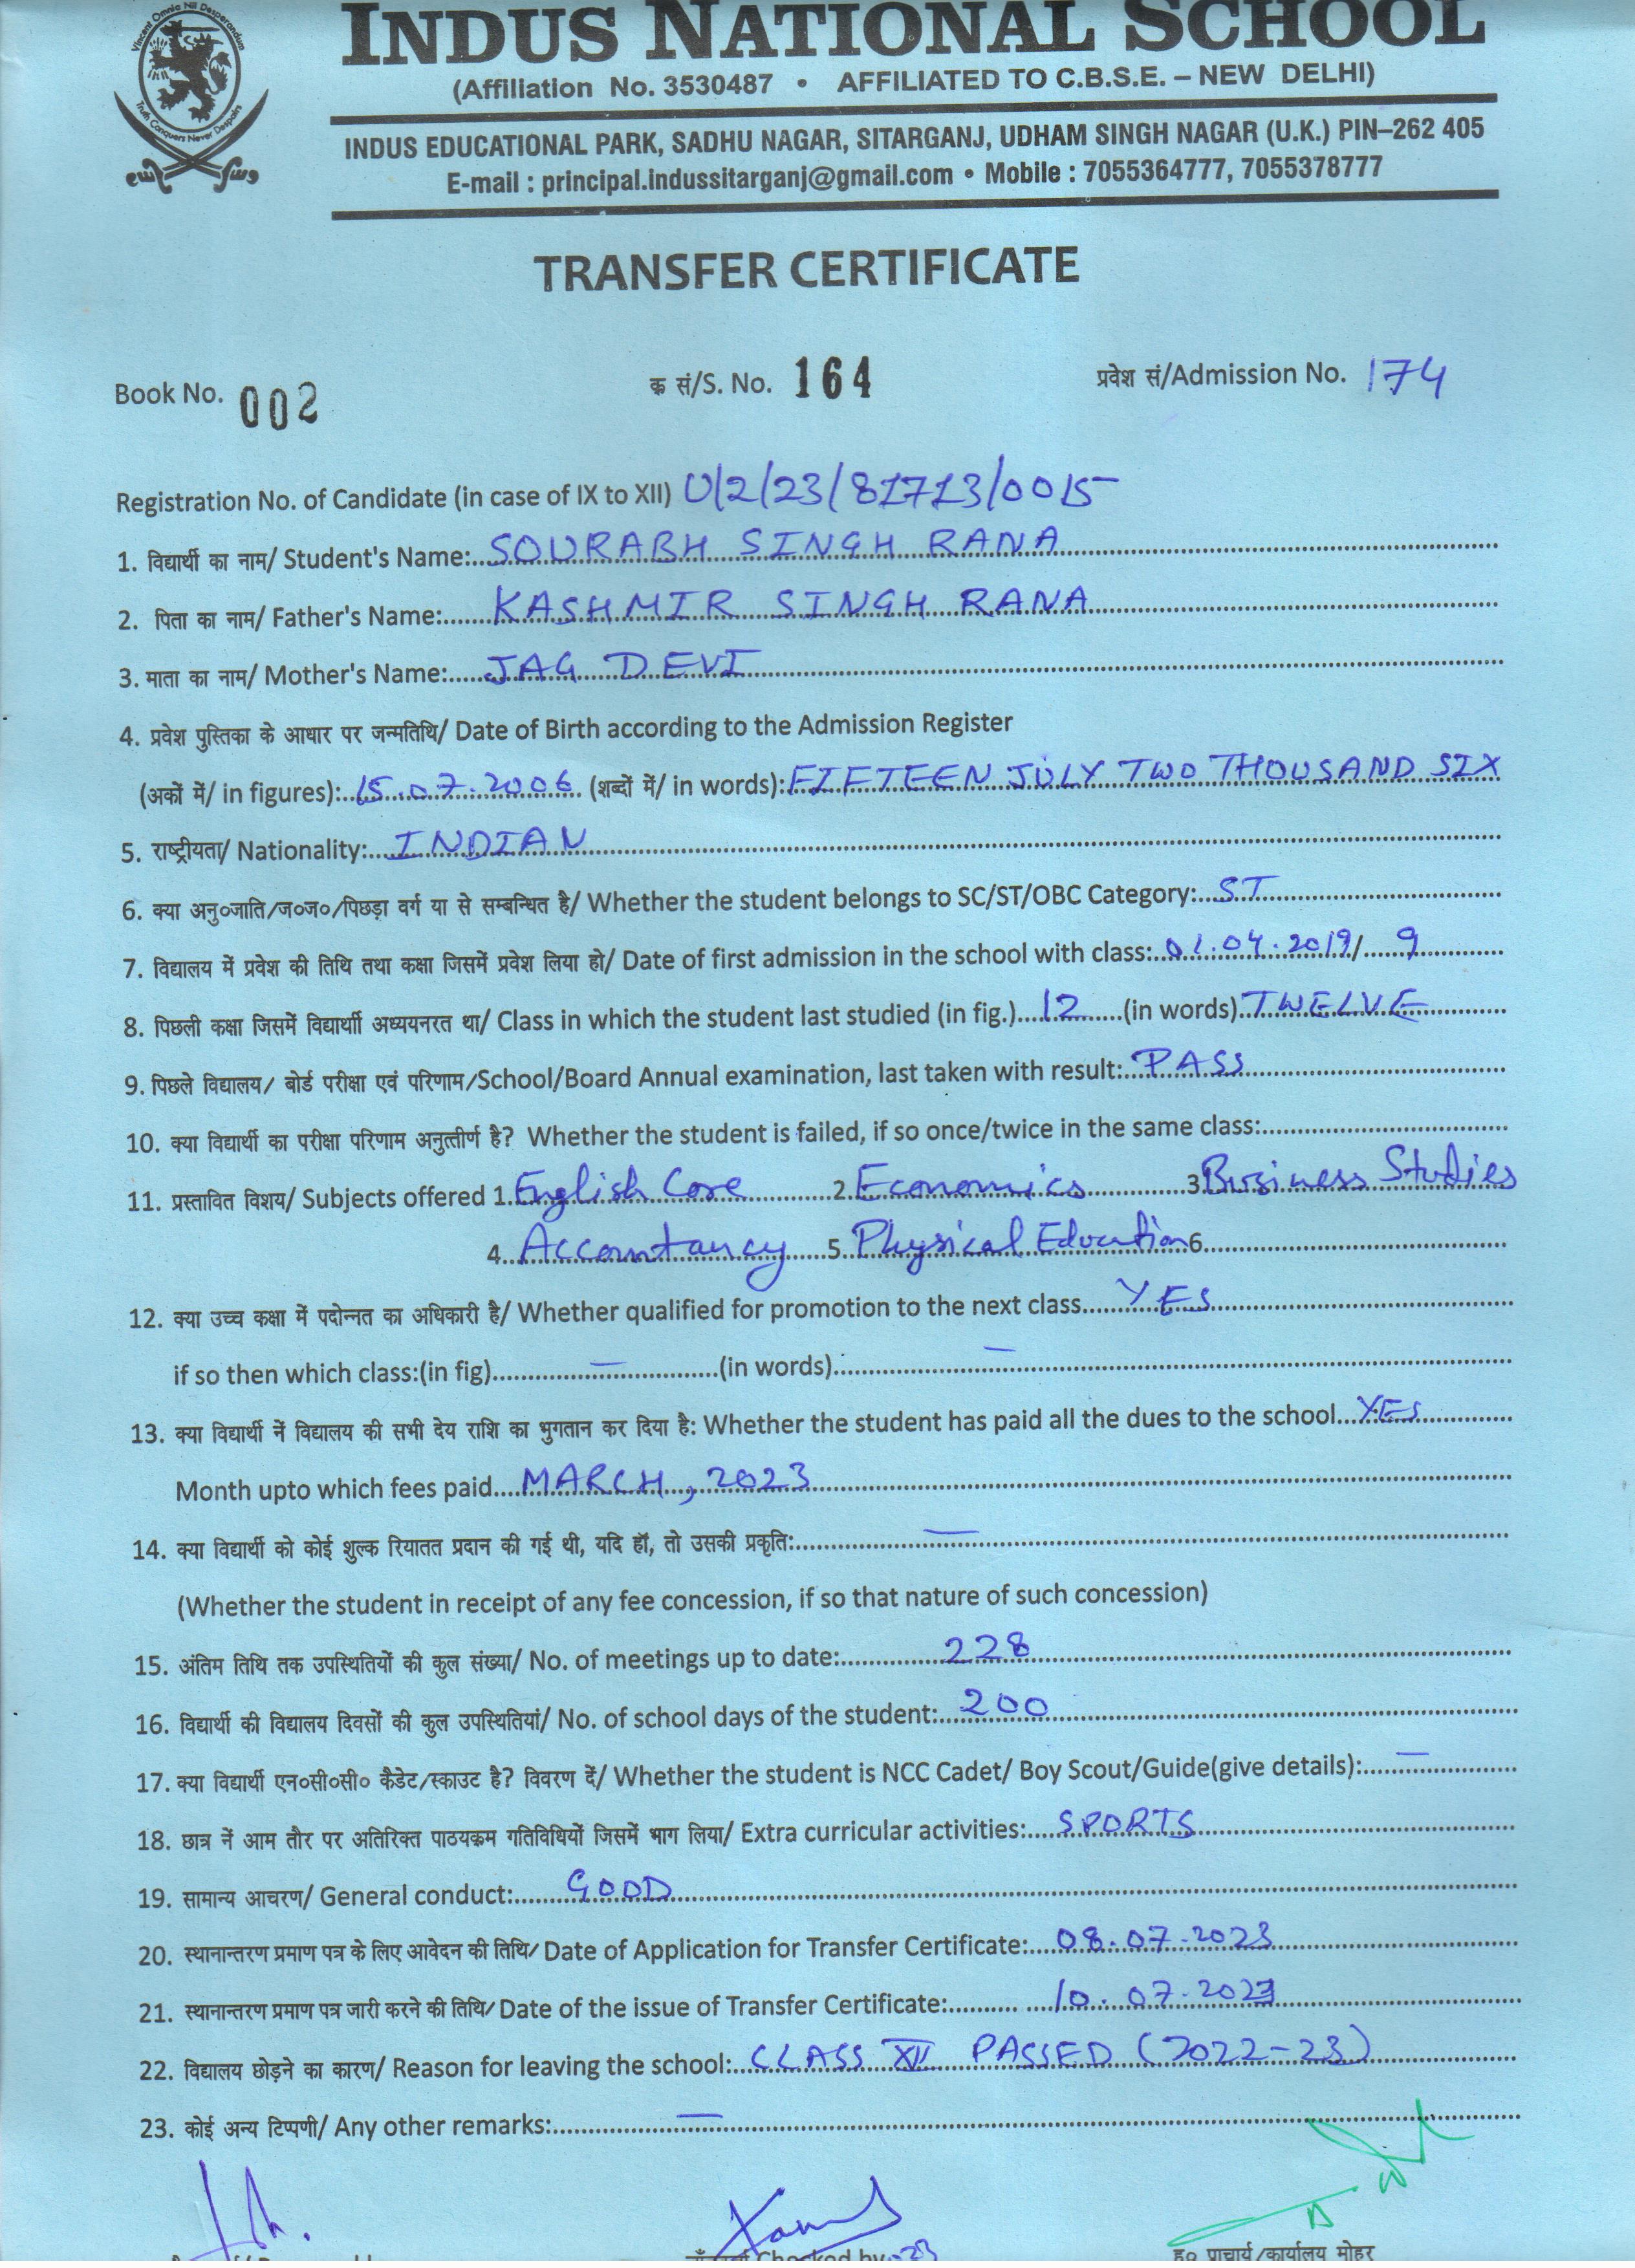 Vincent Omnie Nil Desperandum
Truth Conquers Never Despairs
INDUS NATIONAL SCHOOL
(Affiliation No. 3530487 • AFFILIATED TO C.B.S.E. – NEW DELHI)
INDUS EDUCATIONAL PARK, SADHU NAGAR, SITARGANJ, UDHAM SINGH NAGAR (U.K.) PIN–262 405
E-mail : principal.indussitarganj@gmail.com • Mobile : 7055364777, 7055378777
TRANSFER CERTIFICATE
Book No. 002 क्र सं/S. No. 164 प्रवेश सं/Admission No. 174
Registration No. of Candidate (in case of IX to XII) U/2/23/81713/0015
1. विद्यार्थी का नाम/ Student's Name: SOURABH SINGH RANA
2. पिता का नाम/ Father's Name: KASHMIR SINGH RANA
3. माता का नाम/ Mother's Name: JAG DEVI
4. प्रवेश पुस्तिका के आधार पर जन्मतिथि/ Date of Birth according to the Admission Register
(अकों में/ in figures): 15.07.2006 (शब्दों में/ in words): FIFTEEN JULY TWO THOUSAND SIX
5. राष्ट्रीयता/ Nationality: INDIAN
6. क्या अनु०जाति/ज०ज०/पिछड़ा वर्ग या से सम्बन्धित है/ Whether the student belongs to SC/ST/OBC Category: ST
7. विद्यालय में प्रवेश की तिथि तथा कक्षा जिसमें प्रवेश लिया हो/ Date of first admission in the school with class: 01.04.2019/ 9
8. पिछली कक्षा जिसमें विद्यार्थी अध्ययनरत था/ Class in which the student last studied (in fig.) 12 (in words) TWELVE
9. पिछले विद्यालय/ बोर्ड परीक्षा एवं परिणाम/School/Board Annual examination, last taken with result: PASS
10. क्या विद्यार्थी का परीक्षा परिणाम अनुत्तीर्ण है? Whether the student is failed, if so once/twice in the same class:
11. प्रस्तावित विशय/ Subjects offered 1. English Core 2. Economics 3. Business Studies
4. Accountancy 5. Physical Education 6.
12. क्या उच्च कक्षा में पदोन्नत का अधिकारी है/ Whether qualified for promotion to the next class YES
if so then which class:(in fig) — (in words) —
13. क्या विद्यार्थी नें विद्यालय की सभी देय राशि का भुगतान कर दिया है: Whether the student has paid all the dues to the school YES
Month upto which fees paid MARCH, 2023
14. क्या विद्यार्थी को कोई शुल्क रियातत प्रदान की गई थी, यदि हाॅं, तो उसकी प्रकृति: —
(Whether the student in receipt of any fee concession, if so that nature of such concession)
15. अंतिम तिथि तक उपस्थितियों की कुल संख्या/ No. of meetings up to date: 228
16. विद्यार्थी की विद्यालय दिवसों की कुल उपस्थितियां/ No. of school days of the student: 200
17. क्या विद्यार्थी एन०सी०सी० कैडेट/स्काउट है? विवरण दें/ Whether the student is NCC Cadet/ Boy Scout/Guide(give details): —
18. छात्र नें आम तौर पर अतिरिक्त पाठयक्रम गतिविधियों जिसमें भाग लिया/ Extra curricular activities: SPORTS
19. सामान्य आचरण/ General conduct: GOOD
20. स्थानान्तरण प्रमाण पत्र के लिए आवेदन की तिथि/ Date of Application for Transfer Certificate: 08.07.2023
21. स्थानान्तरण प्रमाण पत्र जारी करने की तिथि/ Date of the issue of Transfer Certificate: 10.07.2023
22. विद्यालय छोड़ने का कारण/ Reason for leaving the school: CLASS XII PASSED (2022-23)
23. कोई अन्य टिप्पणी/ Any other remarks: —
Checked by
ह० प्राचार्य/कार्यालय मोहर